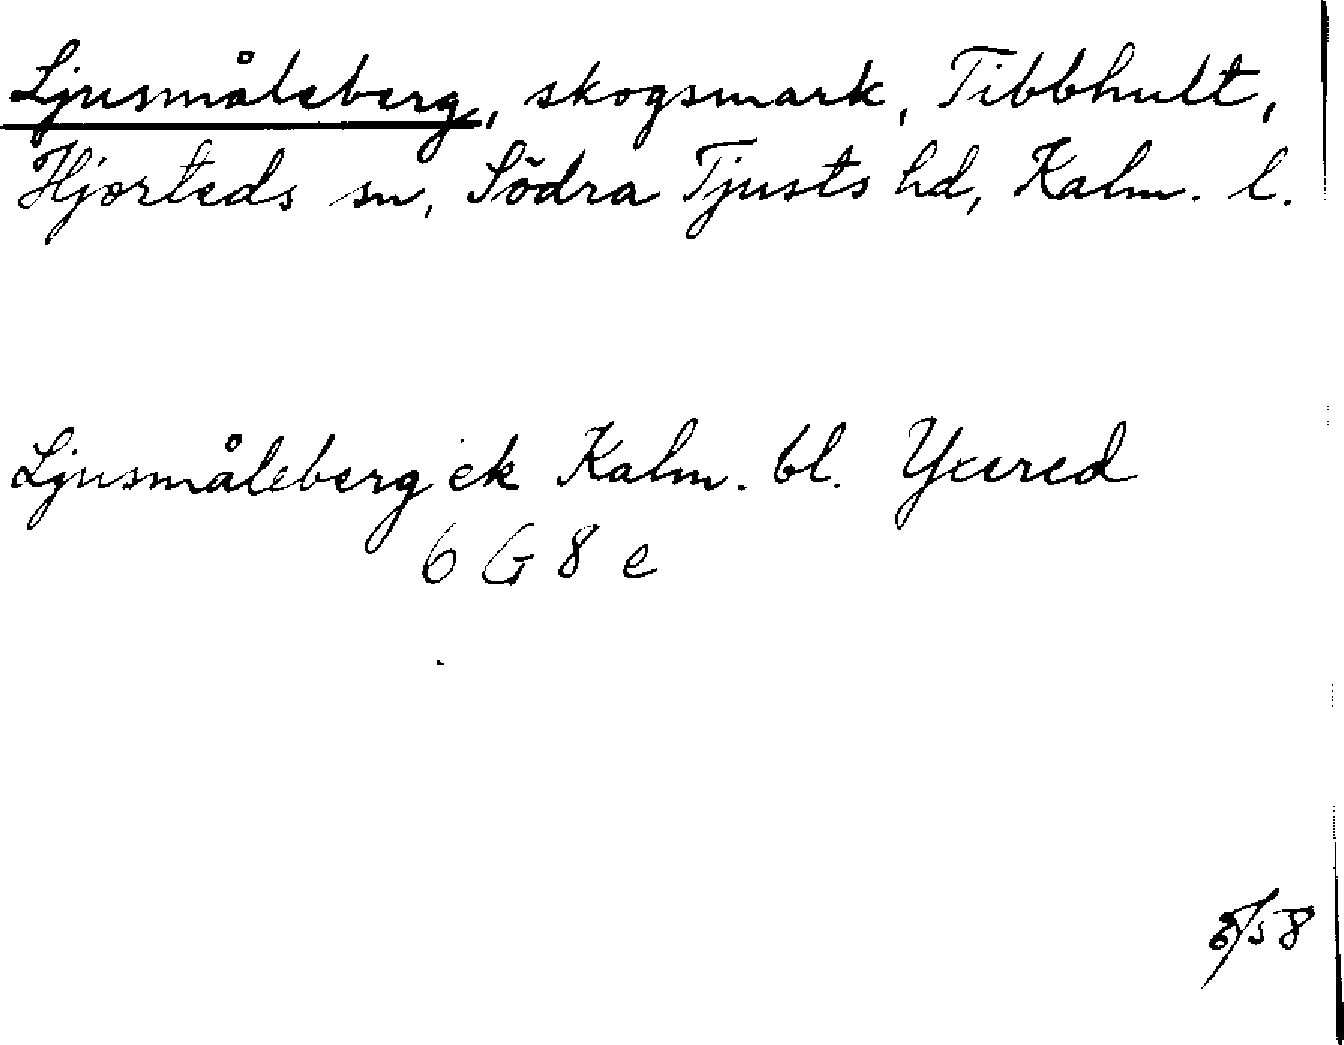 Ljusmåleberg, skogsmark, Tibbhult,
Hjorteds sn, Södra Tjusts hd, Kalm. l.
Ljusmåleberg ek Kalm. bl. Yxered
6 G 8 e